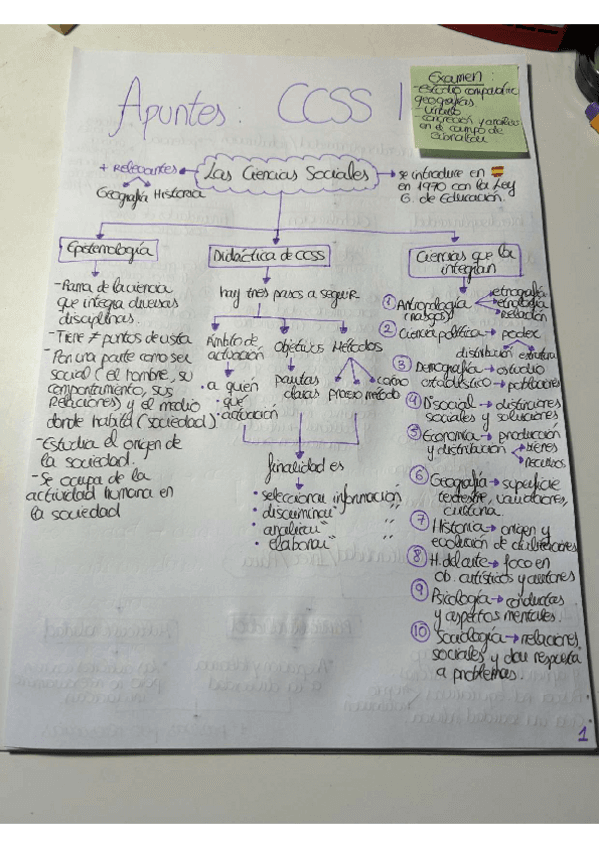 Apuntes: CCSS |
Examen:
- estudio comparativo
geografías.
en el campo de
+ Relevantes
Geografía Historia
Las Ciencias Sociales
se introduce en 🇪🇸
en 1970 con la Ley
G. de Educación.
Epistemología
- Rama de la ciencia
que integra diversas
disciplinas.
- Tiene ≠ puntos de vista
- Por una parte como ser
social (el hombre, su
comportamiento, sus
Relaciones) y el medio
donde habita (sociedad)
- Estudia el origen de
la sociedad.
- Se ocupa de la
actividad humana en
la sociedad
Didáctica de CCSS
hay tres pasos a seguir
Ámbito de
actuación
• a quien
• qué
• actuación
Objetivos
pautas
claras
Métodos
proceso método
como
finalidad es
• seleccionar información
• discriminar "
• analizar "
• elaborar "
Ciencias que la
integran
① Antropología
(rasgos)
etnografía
etnología
Relación
② Ciencia política → poder
distribución estructura
③ Demografía → estudio
estadístico → poblaciones
④ D. social → distinciones
sociales y soluciones
⑤ Economía → producción
y distribución
bienes
recursos
⑥ Geografía → superficie
terrestre, variaciones,
⑦ Historia → origen y
evolución de civilizaciones
⑧ H. del arte → foco en
ob. artísticos y autores
⑨ Psicología → conductas
y aspectos mentales.
⑩ Sociología → relaciones
sociales y dar respuesta
a problemas.
1